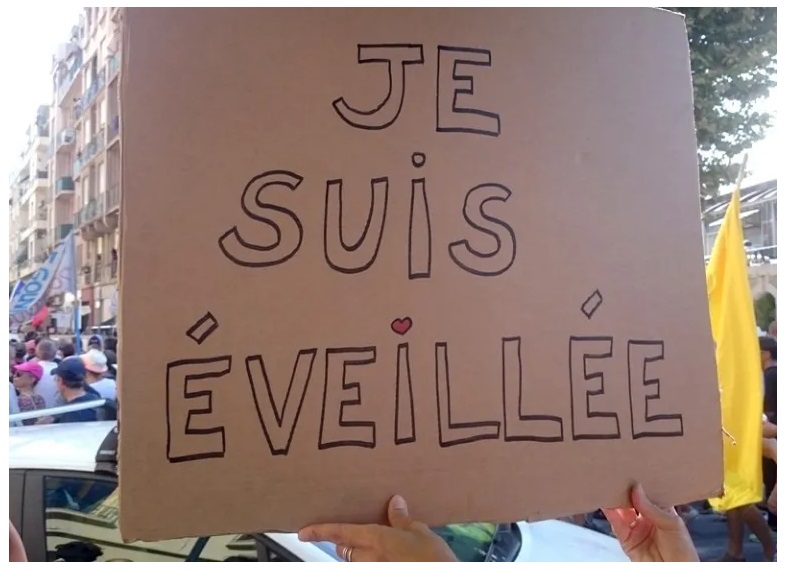 JE
SUiS
ÉVEiLLÉE